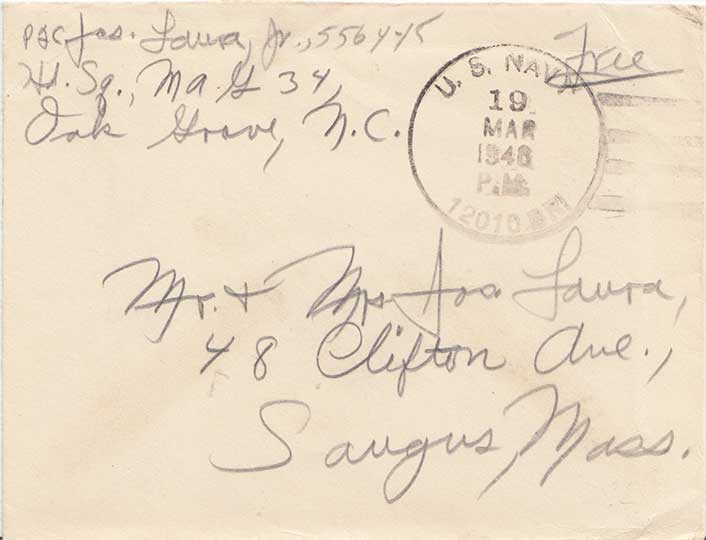 Pfc Jos. Laura, Jr., 556445
Hd. Sq., MaG 34,
Oak Grove, N.C.
Free
U. S. NAVY
19
MAR
1946
P.M.
12010 BR
Mr. + Mrs. Jos. Laura,
48 Clifton Ave.,
Saugus, Mass.